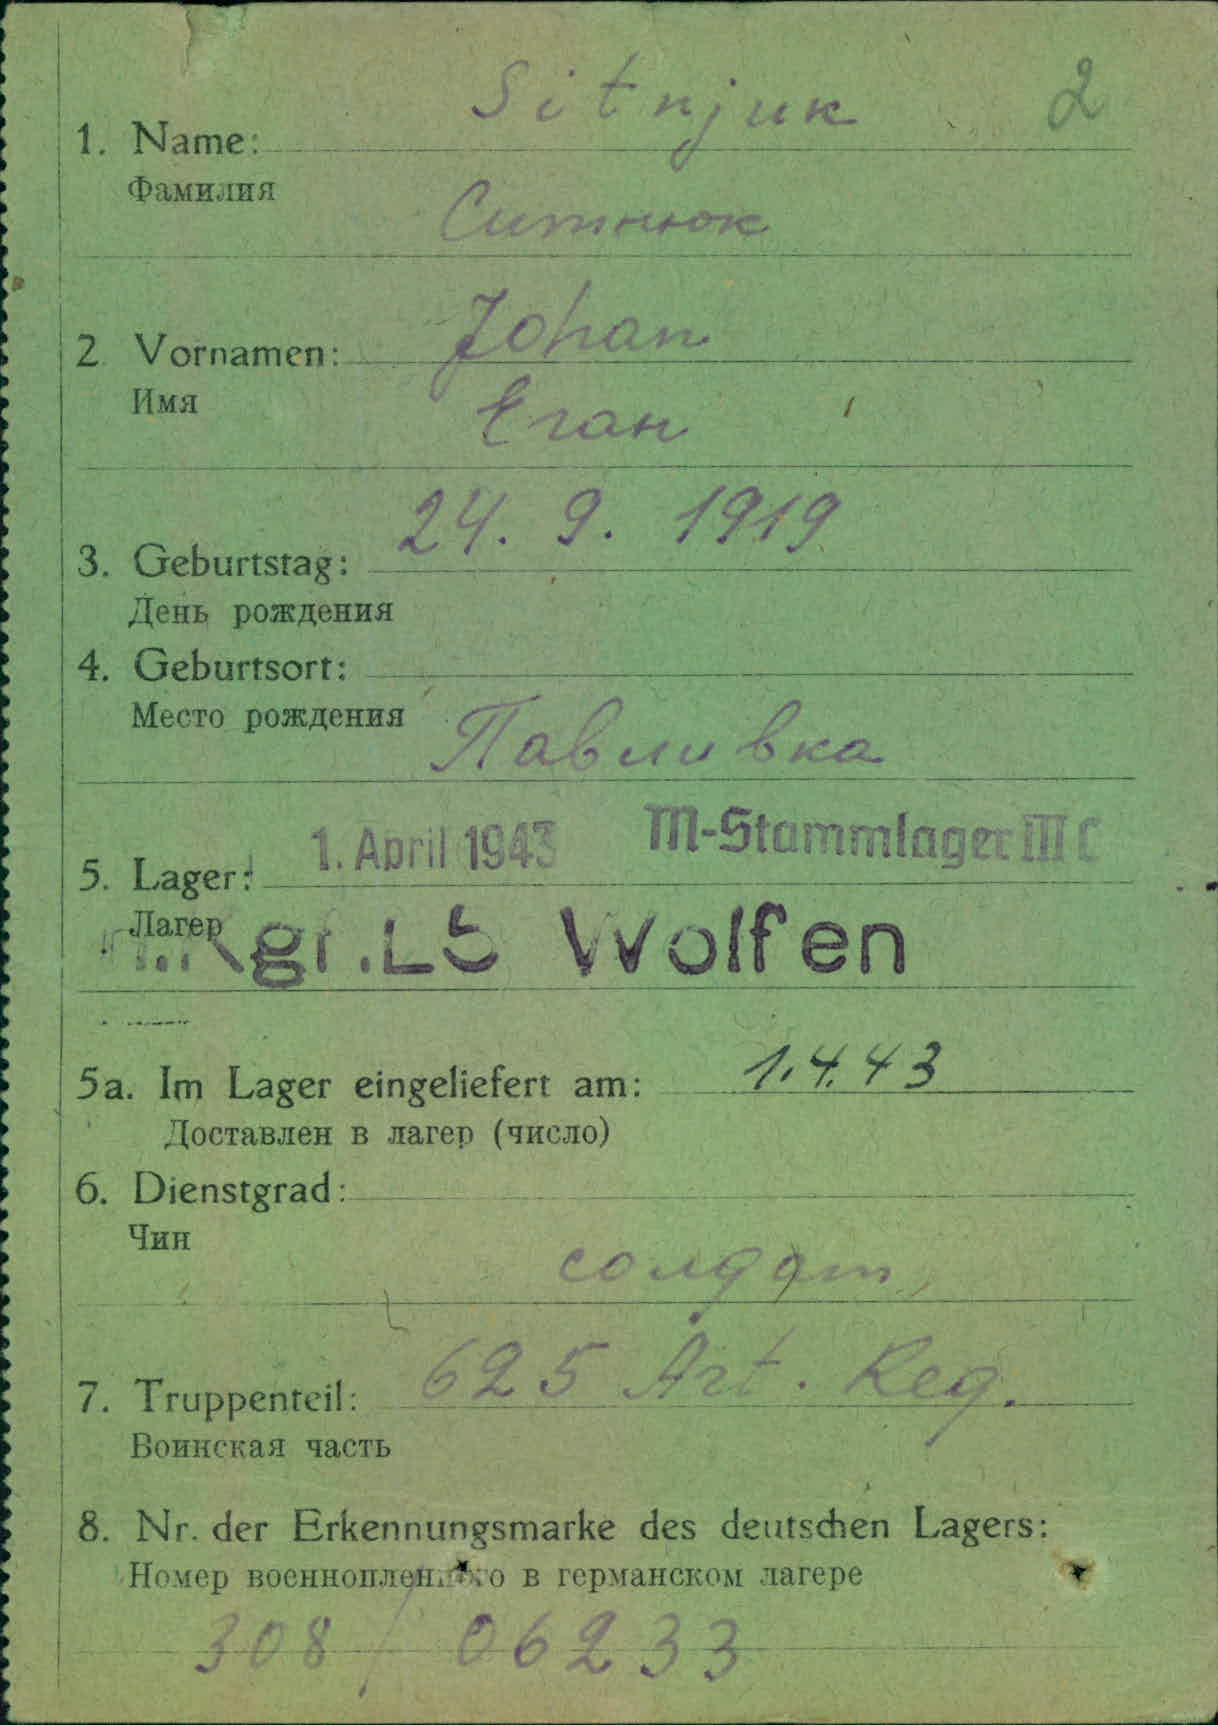 Sitnjuk 2
1. Name:
Фамилия
Ситнюк
Johan
2 Vornamen:
Имя
Еган
24. 9. 1919
3. Geburtstag:
День рождения
4. Geburtsort:
Место рождения
Павливка
1. April 1943 M-Stammlager III C
5. Lager:
Лагер
Wolfen
5a. Im Lager eingeliefert am: 1.4.43
Доставлен в лагер (число)
6. Dienstgrad:
Чин
солдат
7. Truppenteil: 625 Art. Reg.
Воинская часть
8. Nr. der Erkennungsmarke des deutschen Lagers:
Номер военнопленного в германском лагере
308 / 06233